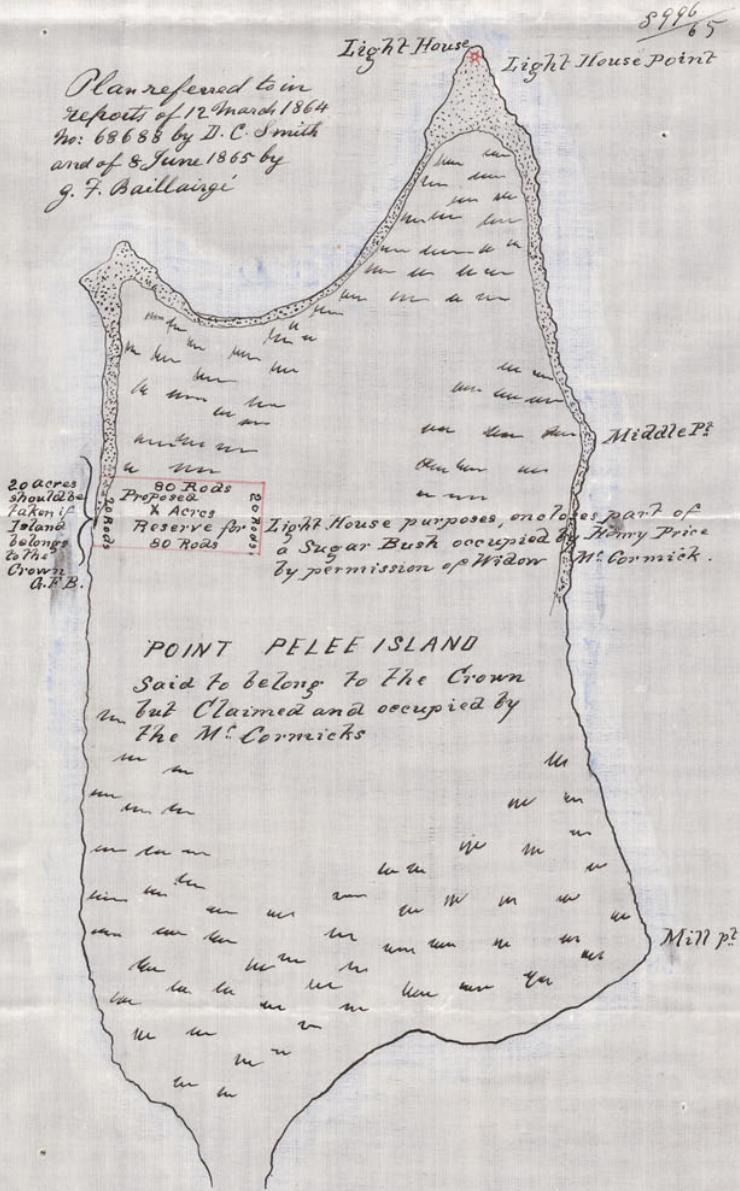 8996
65
Light House
Light House Point
Plan referred to in
reports of 12 March 1864
No: 68688 by D. C. Smith
and of 8 June 1865 by
G. F. Baillairgé
Middle Pt
20 acres
should be
taken if
Island
belongs
to the
Crown
G.F.B.
80 Rods
20 Rods
Proposed
X Acres
Reserve for
80 Rods
20 Rods
Light House purposes, encloses part of
a Sugar Bush occupied by Henry Price
by permission of Widow Mc Cormick.
POINT PELEE ISLAND
Said to belong to the Crown
but Claimed and occupied by
the Mc Cormicks
Mill pt